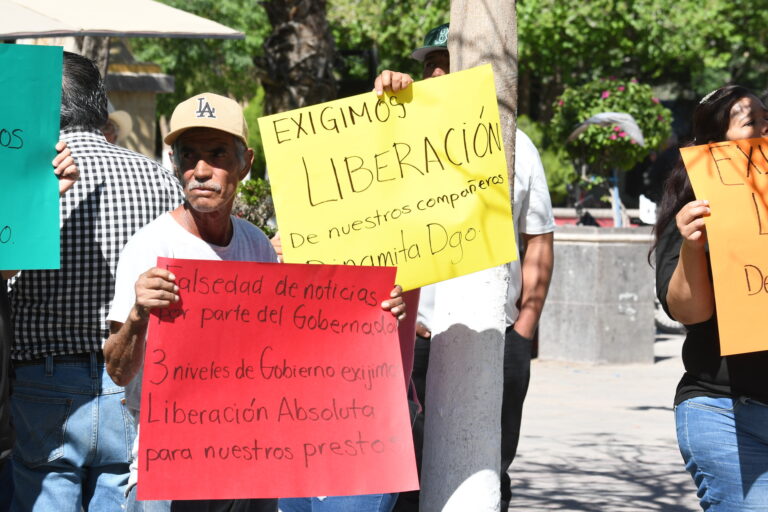 os
o.
LA
EXIGIMOS
LIBERACIÓN
De nuestros compañeros
Dinamita Dgo.
Falsedad de noticias
Por parte del Gobernador
3 niveles de Gobierno exijimo
Liberación Absoluta
para nuestros prestos
EXI
L
De